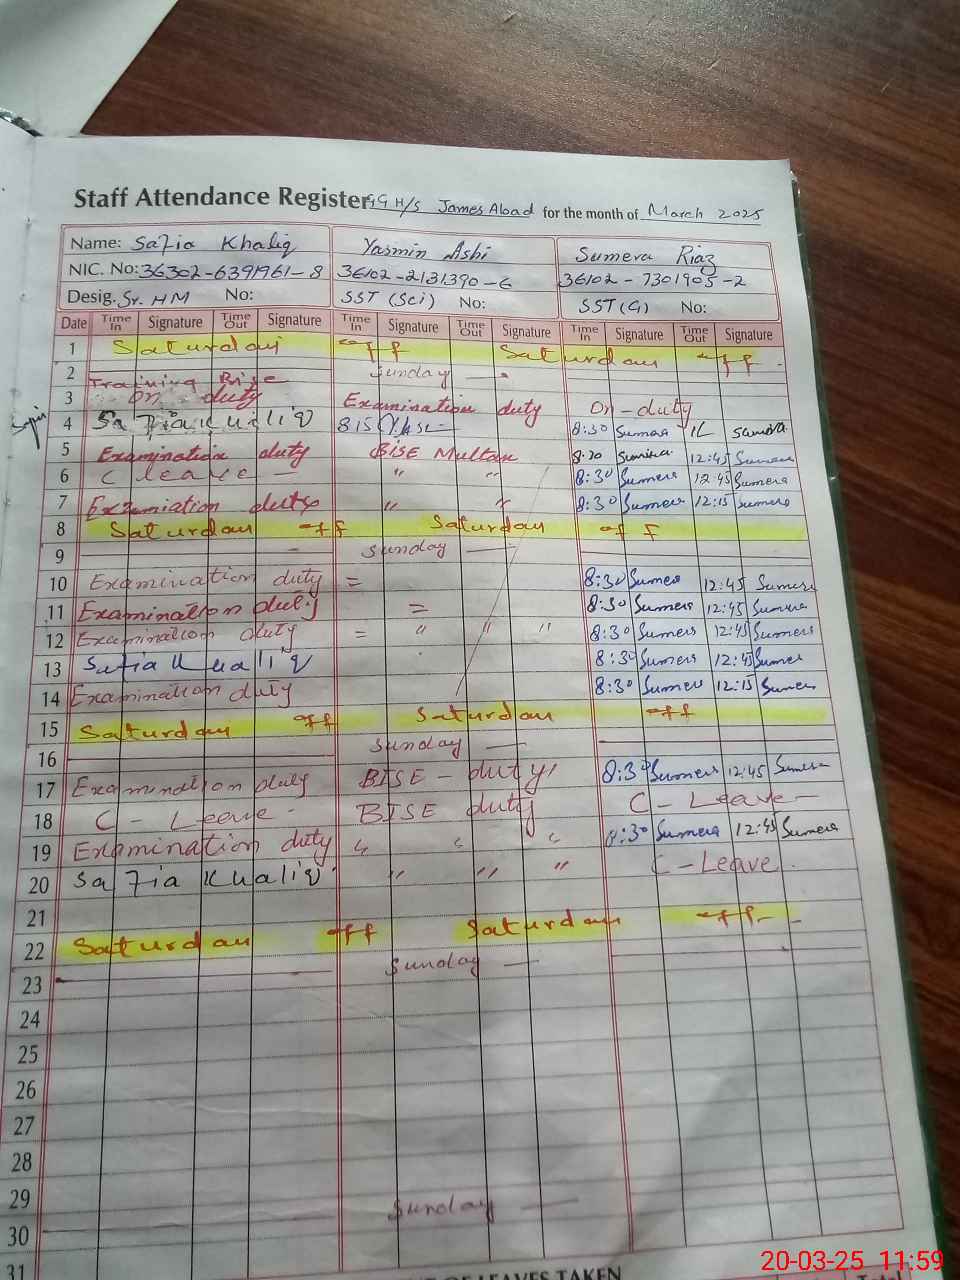 Staff Attendance Register GG H/S James Abad for the month of March 2025
Name: Safia Khaliq Yasmin Ashi Sumera Riaz
NIC. No: 36302-6391961-8 36102-2131390-6 36102-7301905-2
Desig. Sr. HM No: SST (Sci) No: SST (G) No:
Date Time In Signature Time Out Signature Time In Signature Time Out Signature Time In Signature Time Out Signature
1 Saturday off Saturday off
2 Sunday
Training Bise
3 on duty Examination duty On-duty
4 Safia Khaliq 8:30 Sumera 12 Sumera
5 Examination duty BISE Multan 8:30 Sumera 12:45 Sumera
6 C leave " " 8:30 Sumera 12:45 Sumera
7 Examination duty " " 8:30 Sumera 12:15 Sumera
8 Saturday off Saturday off
9 Sunday
10 Examination duty = 8:30 Sumera 12:45 Sumera
11 Examination duty = 8:30 Sumera 12:45 Sumera
12 Examination duty = " " " 8:30 Sumera 12:45 Sumera
13 Safia Khaliq 8:30 Sumera 12:45 Sumera
14 Examination duty 8:30 Sumera 12:15 Sumera
15 Saturday off Saturday off
16 Sunday
17 Examination duty BISE - duty 8:30 Sumera 12:45 Sumera
18 C - Leave - BISE duty C - Leave -
19 Examination duty " " " 8:30 Sumera 12:45 Sumera
20 Safia Khaliq " " " C - Leave
21
22 Saturday off Saturday off
23 Sunday
24
25
26
27
28
29
30 Sunday
31
OF LEAVES TAKEN
20-03-25 11:59